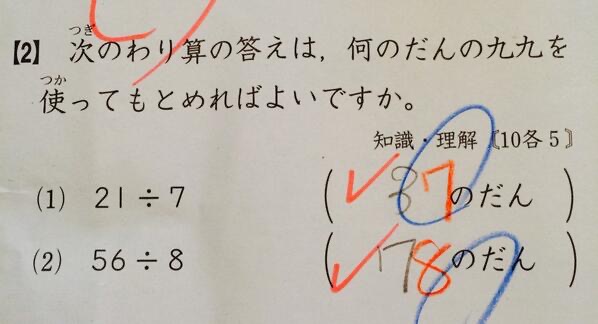 【2】 次のわり算の答えは，何のだんの九九を
使ってもとめればよいですか。
知識・理解〔10各5〕
(1) 21÷7 (3 7のだん)
(2) 56÷8 (7 8のだん)